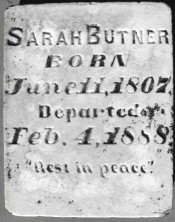 SARAH BUTNER
BORN
June 11, 1807.
Departed
Feb. 4, 1888.
"Rest in peace."